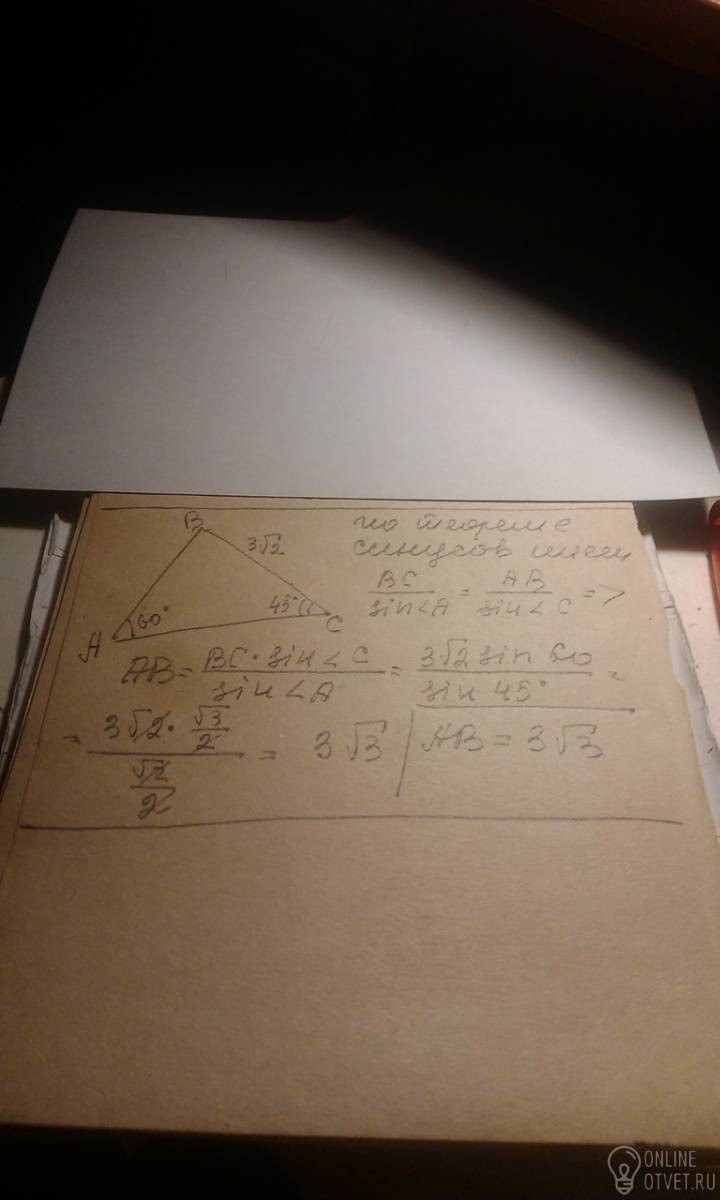 B
3√2
60°
45°
A
C
по теореме
синусов имеем
BC/sin∠A = AB/sin∠C =>
AB = BC·sin∠C/sin∠A = 3√2 sin 60/sin 45° =
= 3√2·√3/2/√2/2 = 3√3
AB = 3√3
ONLINE
OTVET.RU